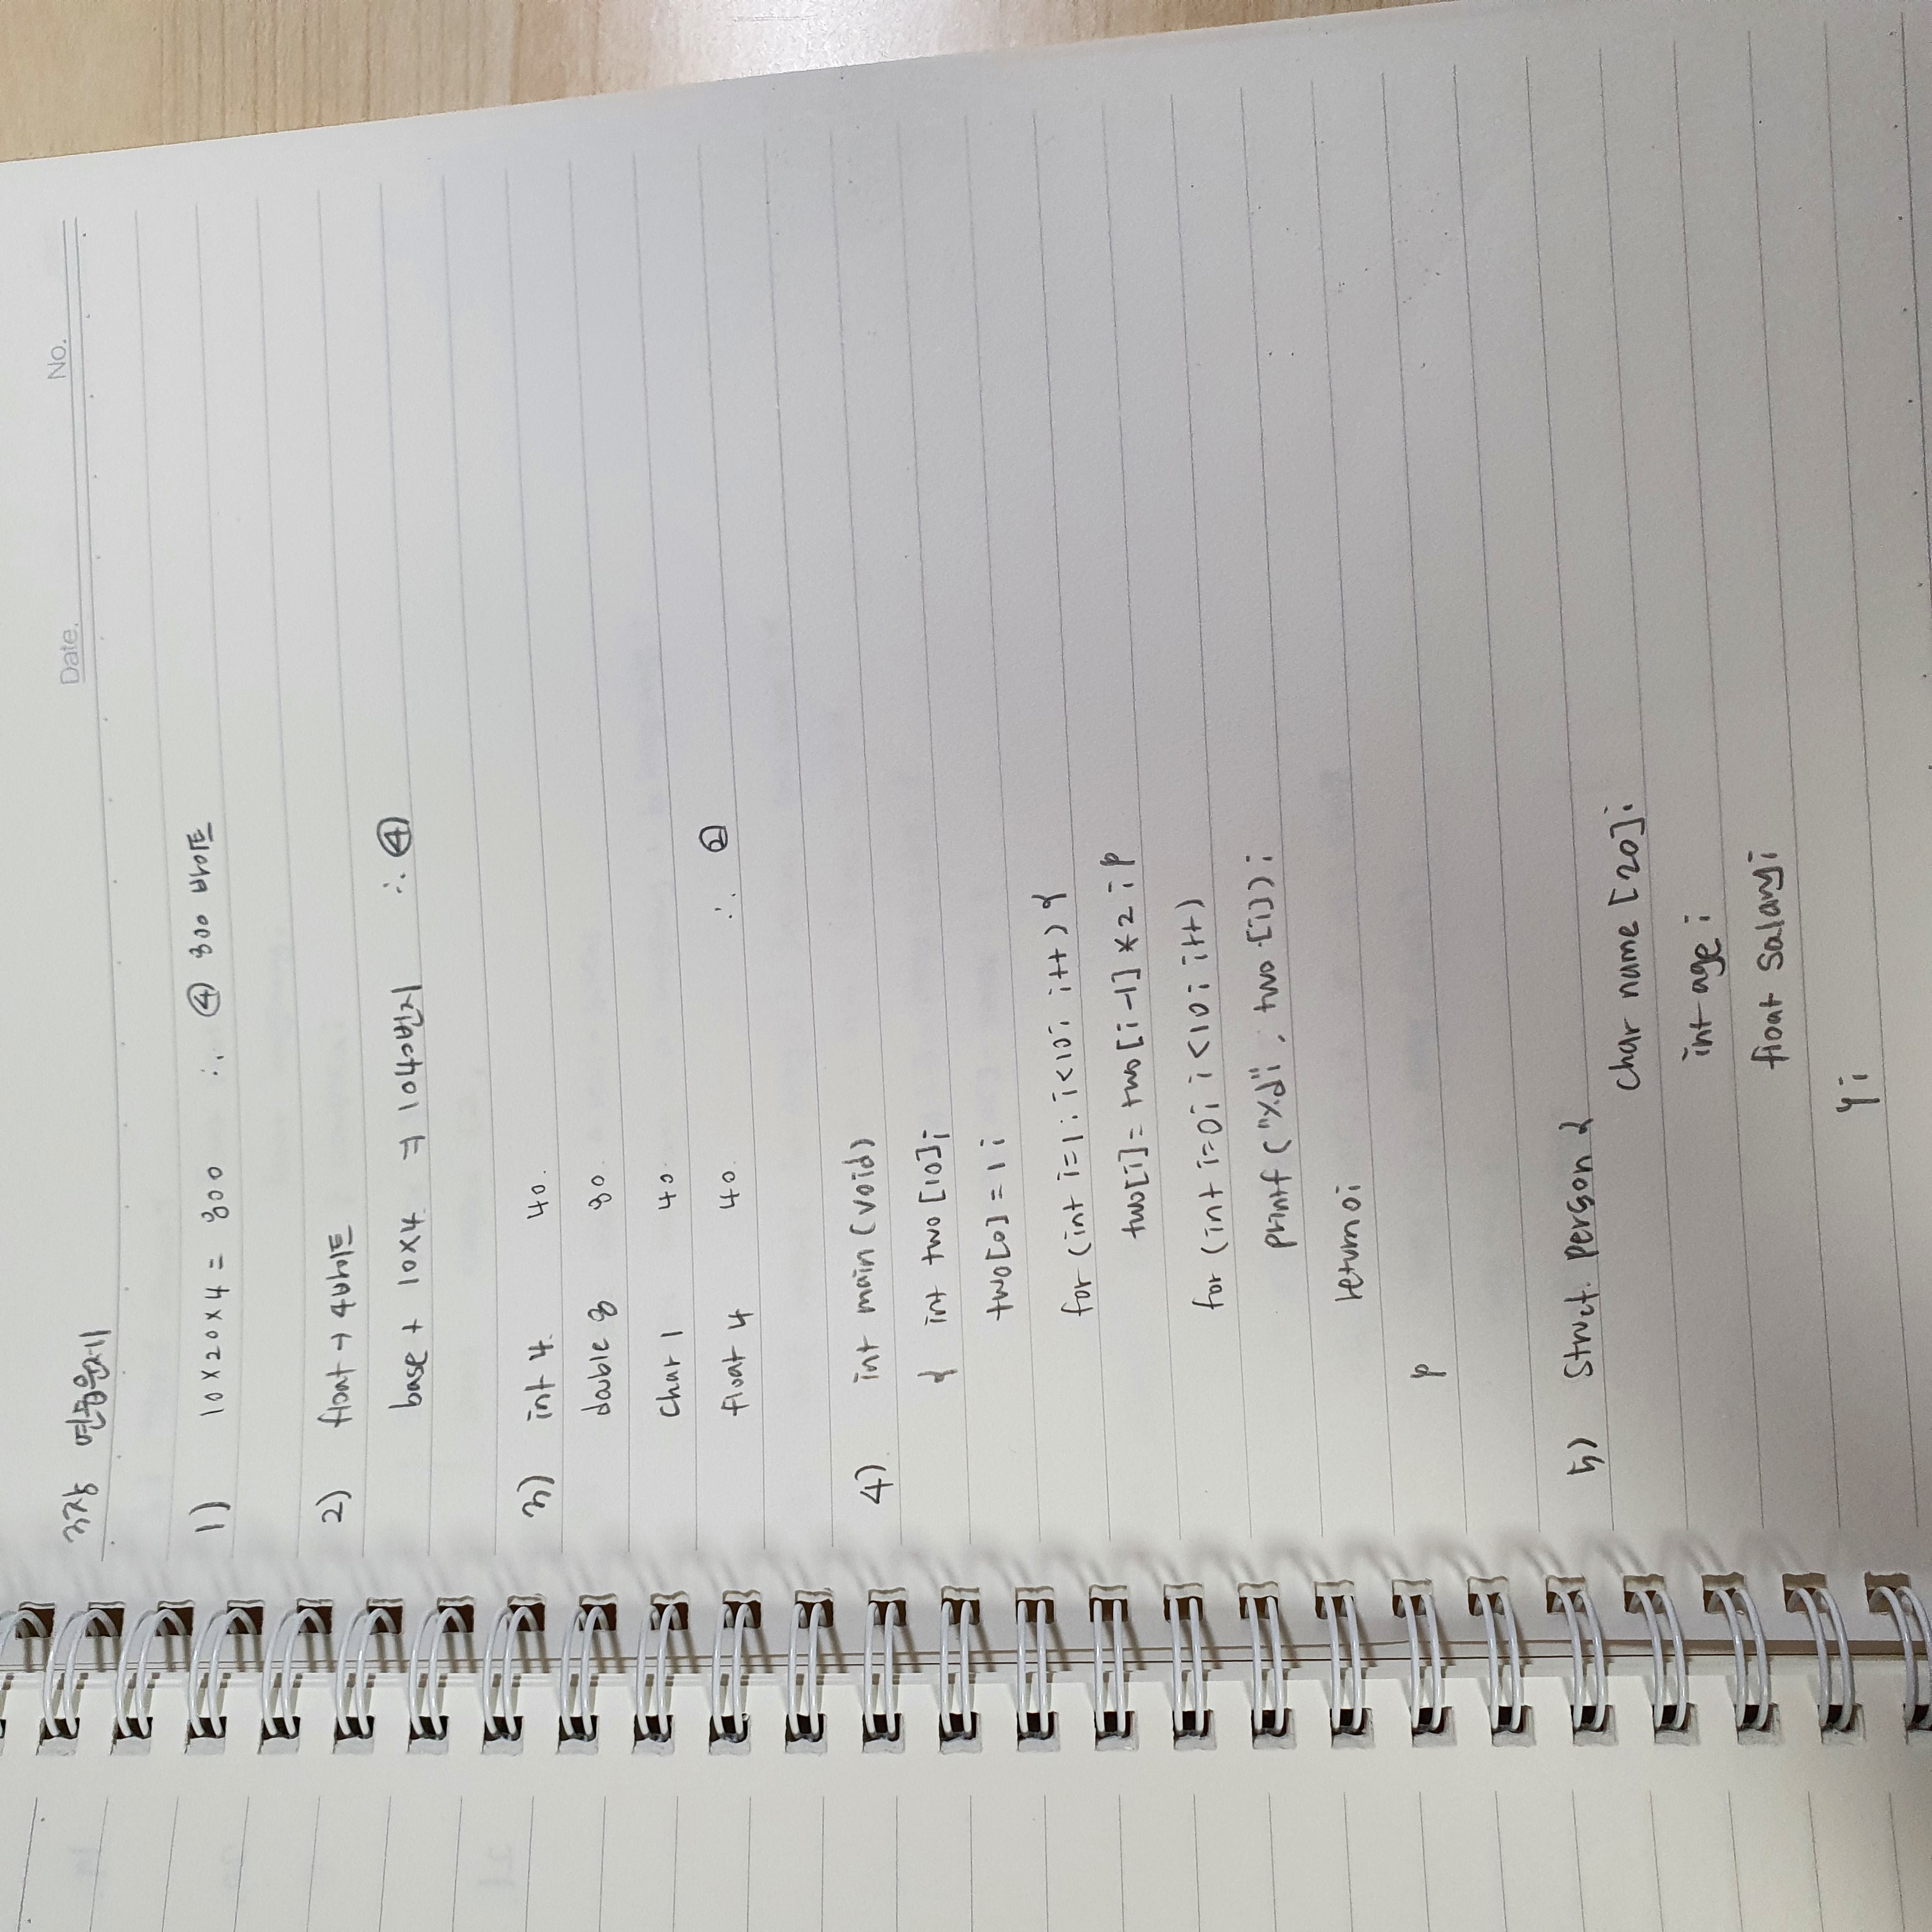 3장 연습문제
Date.
No.
1) 10×20×4 = 800 ∴ ④ 800 바이트
2) float → 4바이트
base + 10×4 ⇒ 1040번지 ∴ ④
3) int 4. 40.
double 8 80.
char 1 40
float 4 40. ∴ ②
4) int main (void)
{ int two [10];
two[0] = 1;
for (int i=1; i<10; i++) {
two[i] = two [i-1] * 2; }
for (int i=0; i<10; i++)
printf ("%d", two [i]);
return 0;
}
5) struct person {
char name [20];
int age;
float salary;
};